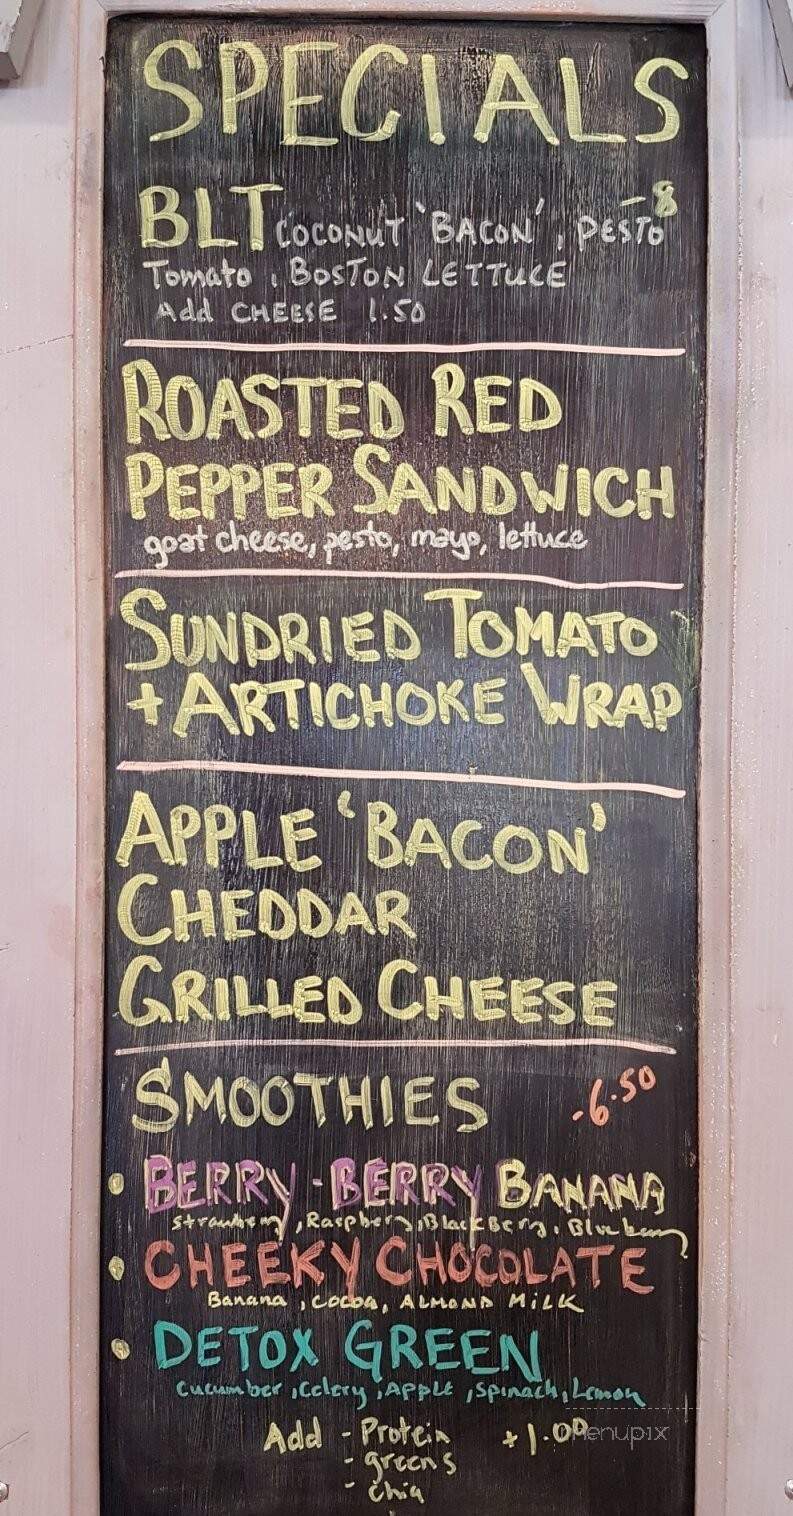 SPECIALS
BLT COCONUT 'BACON', PESTO -8
Tomato, BOSTON LETTUCE
Add CHEESE 1.50
ROASTED RED
PEPPER SANDWICH
goat cheese, pesto, mayo, lettuce
SUNDRIED TOMATO
+ ARTICHOKE WRAP
APPLE 'BACON'
CHEDDAR
GRILLED CHEESE
SMOOTHIES -6.50
• BERRY-BERRY BANANA
Strawberry, Raspberry, BlackBerry, Blueberry
• CHEEKY CHOCOLATE
Banana, COCOA, ALMOND MILK
• DETOX GREEN
Cucumber, Celery, Apple, Spinach, Lemon
Add - Protein +1.00
- greens
- chia
menupix